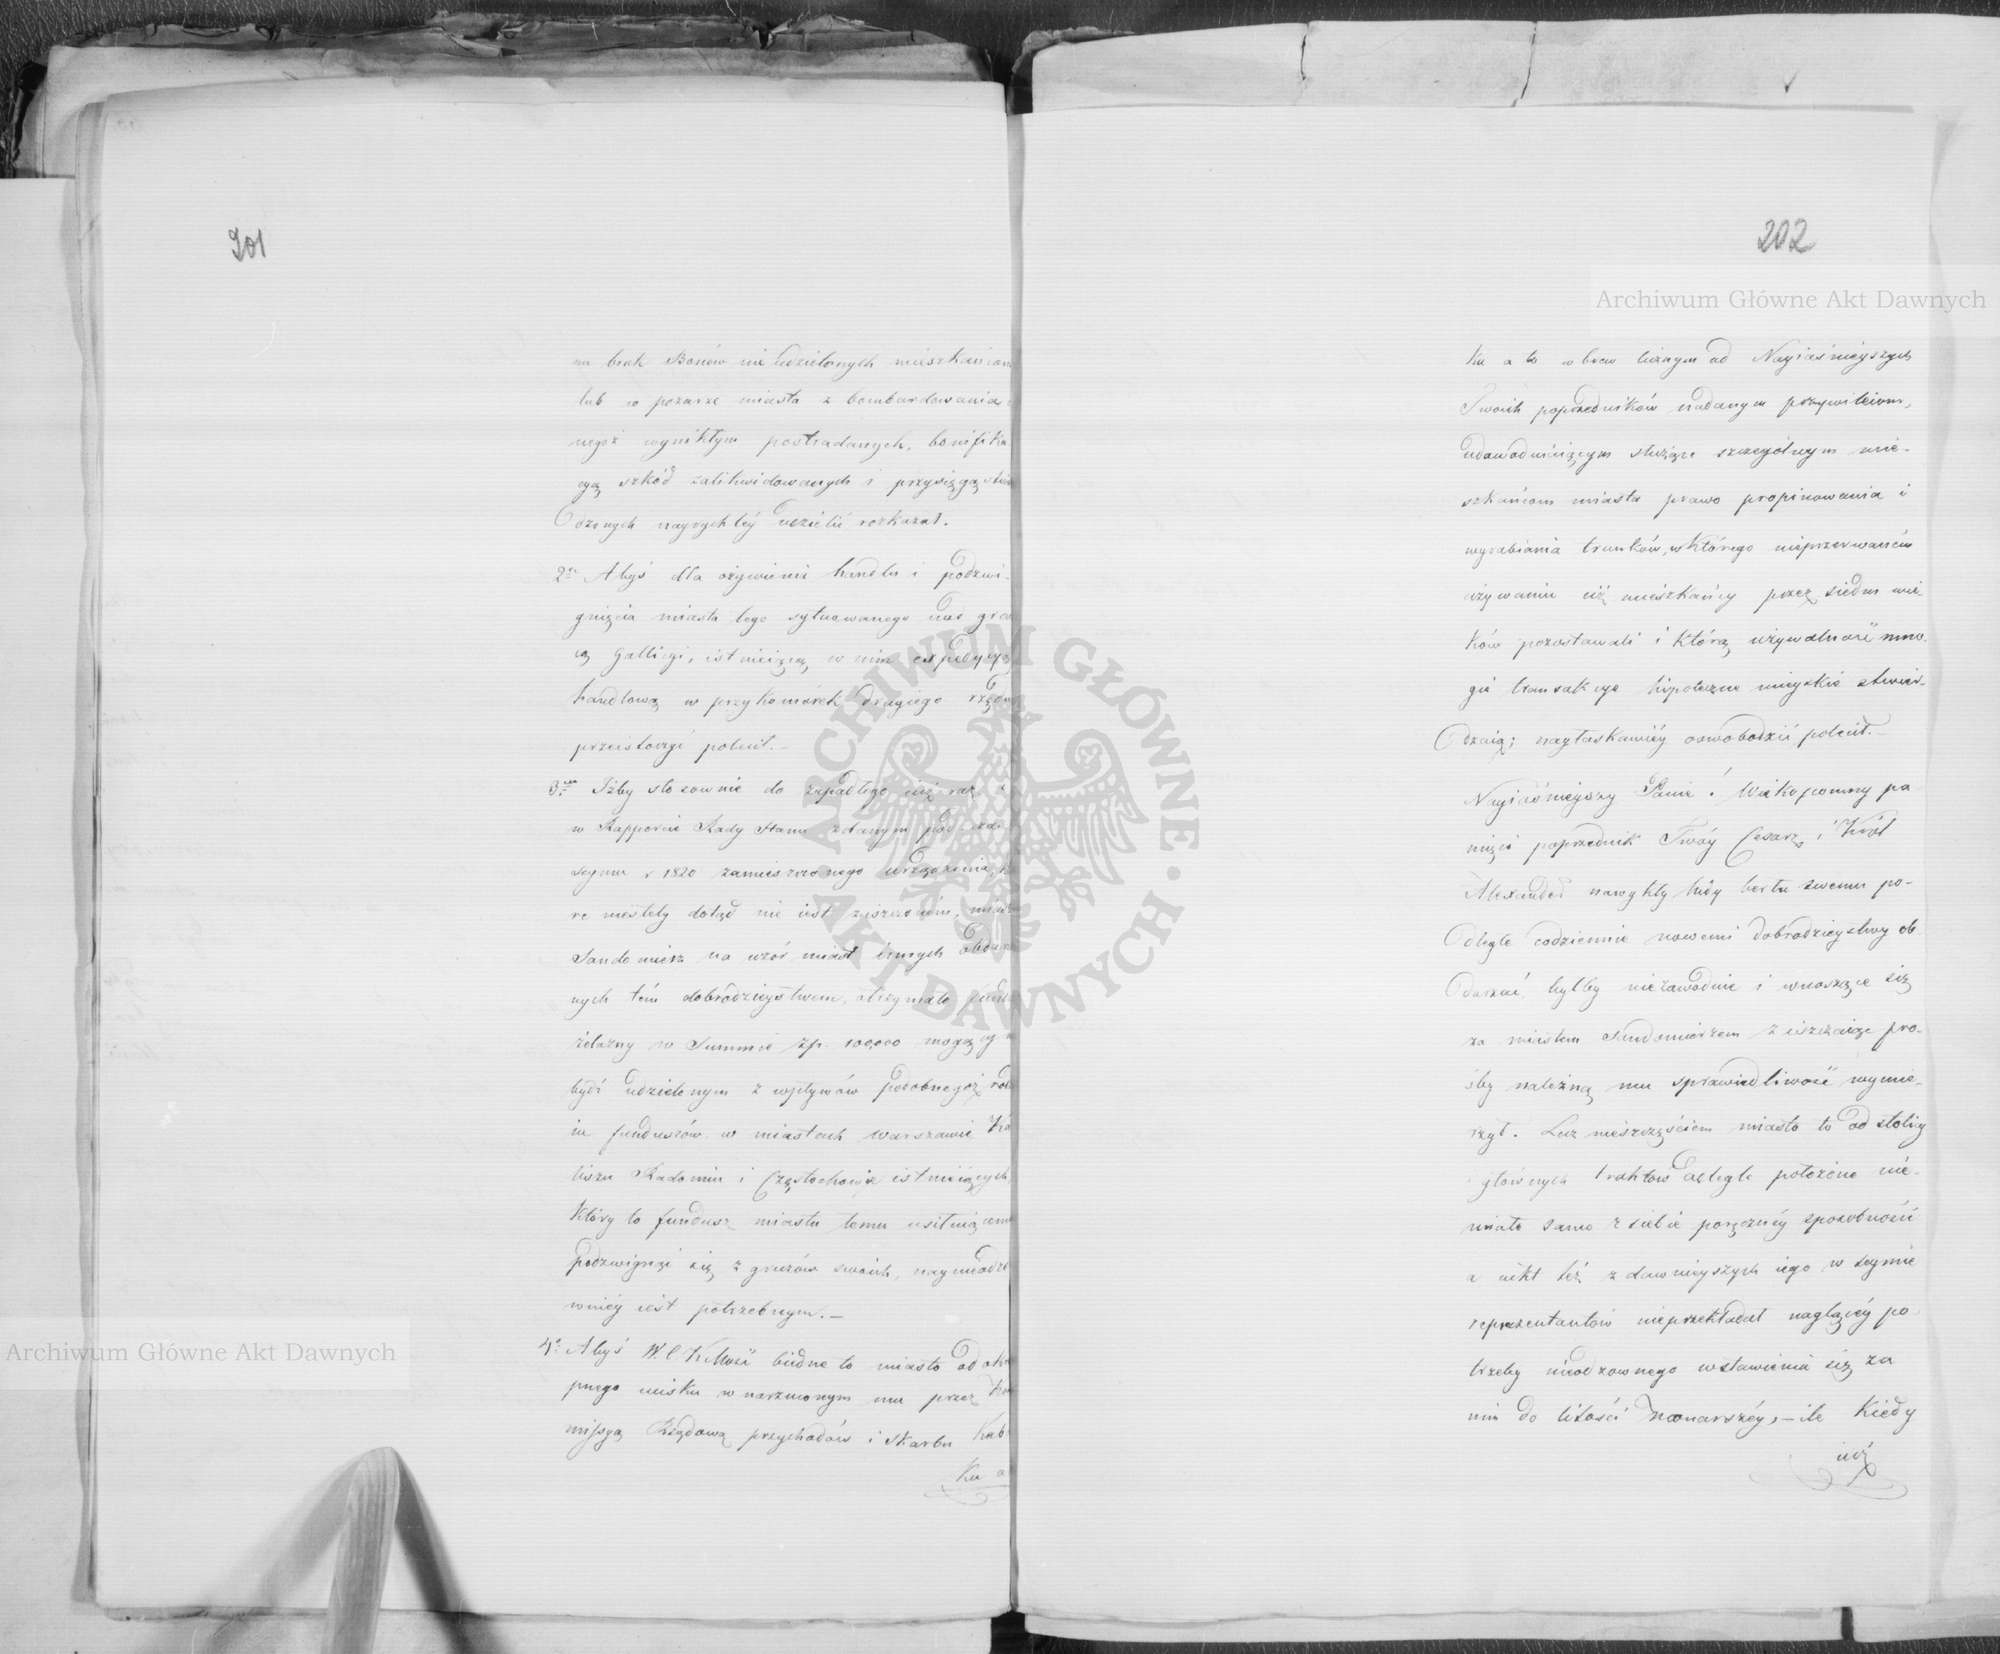 201
na brak Bonów nie udzielonych mieszkańcom
lub w pożarze miasta z bombardowania
negoż wynikłym postradanych, bonifika
cyą szkód zalikwidowanych i przysięgą stwier
dzonych nayrychléy udzielić rozkazał.
2re Abyś dla ożywienia handlu i podźwi-
gnięcia miasta tego sytuowanego nad gra
cą Gallicyi, istnieiącą w nim expedycyą
handlową w przykomorek drugiego rzędu
przeistoczyć polecił.-
3cie Iżby stosownie do zapadłego iuż raz i
w Rapporcie Rady Stanu zdanym pod czas
seymu r 1820 zamieszczonego urządzenia, któ
re niestety dotąd nie iest ziszczoném, miasto
Sandomierz na wzór miast innych obdarzo
nych tém dobrodzieystwem, otrzymało fundusz
żelazny w Summie zp. 100,000 mogący
bydź udzielonym z wpływów podobnegoż rodza
iu funduszów w miastach Warszawie, Ka
liszu Radomiu i Częstochowie istnieiących,
który to fundusz miastu temu usiłuiącemu
podźwignąć się z gruzów swoich, naynieodzo
wniéy iest potrzebnym.-
4e Abyś W. C. K. Mość biédne to miasto od okro
pnego ucisku w narzuconym mu przez Kom
missyą Rządową przychodów i Skarbu Kab
ku a
202
ku a to wbrew licznym od Nayiaśnieyszych
Twoich poprzedników nadanym przywileiom,
udowodniaiącym służące szczególnym mie-
szkańcom miasta prawo propinowania i
wyrabiania trunków, w którego nieprzerwaném
używaniu ciż mieszkańcy przez siedm wie-
ków pozostawali i którą używalność mno
gie tranzakcye hipoteczne mieyskie stwier-
dzaią; nayłaskawiéy oswobodzić polecił.-
Nayiaśnieyszy Panie! Wiekopomny pa-
mięci poprzednik Twóy Cesarz i Król
Alexander nawykły ludy berłu swemu po-
dległe codziennie nowemi dobrodzieystwy ob-
darzać byłby niezawodnie i wnoszące się
za miastem Sandomierzem ziszczaiąc pro-
śby należną mu sprawiedliwość wymie-
rzył. Lecz nieszczęściem miasto to od stolicy
i głównych traktów odlegle położone nie-
miało samo z siebie poręcznéy sposobności
a nikt też z dawnieyszych iego w seymie
reprezentantów nieprzekładał naglącéy po-
trzeby nieodzownego wstawienia się za
nim do litości Monarszéy,- ile kiedy
iuż
Archiwum Główne Akt Dawnych
Archiwum Główne Akt Dawnych
ARCHIWUM GŁÓWNE AKT DAWNYCH